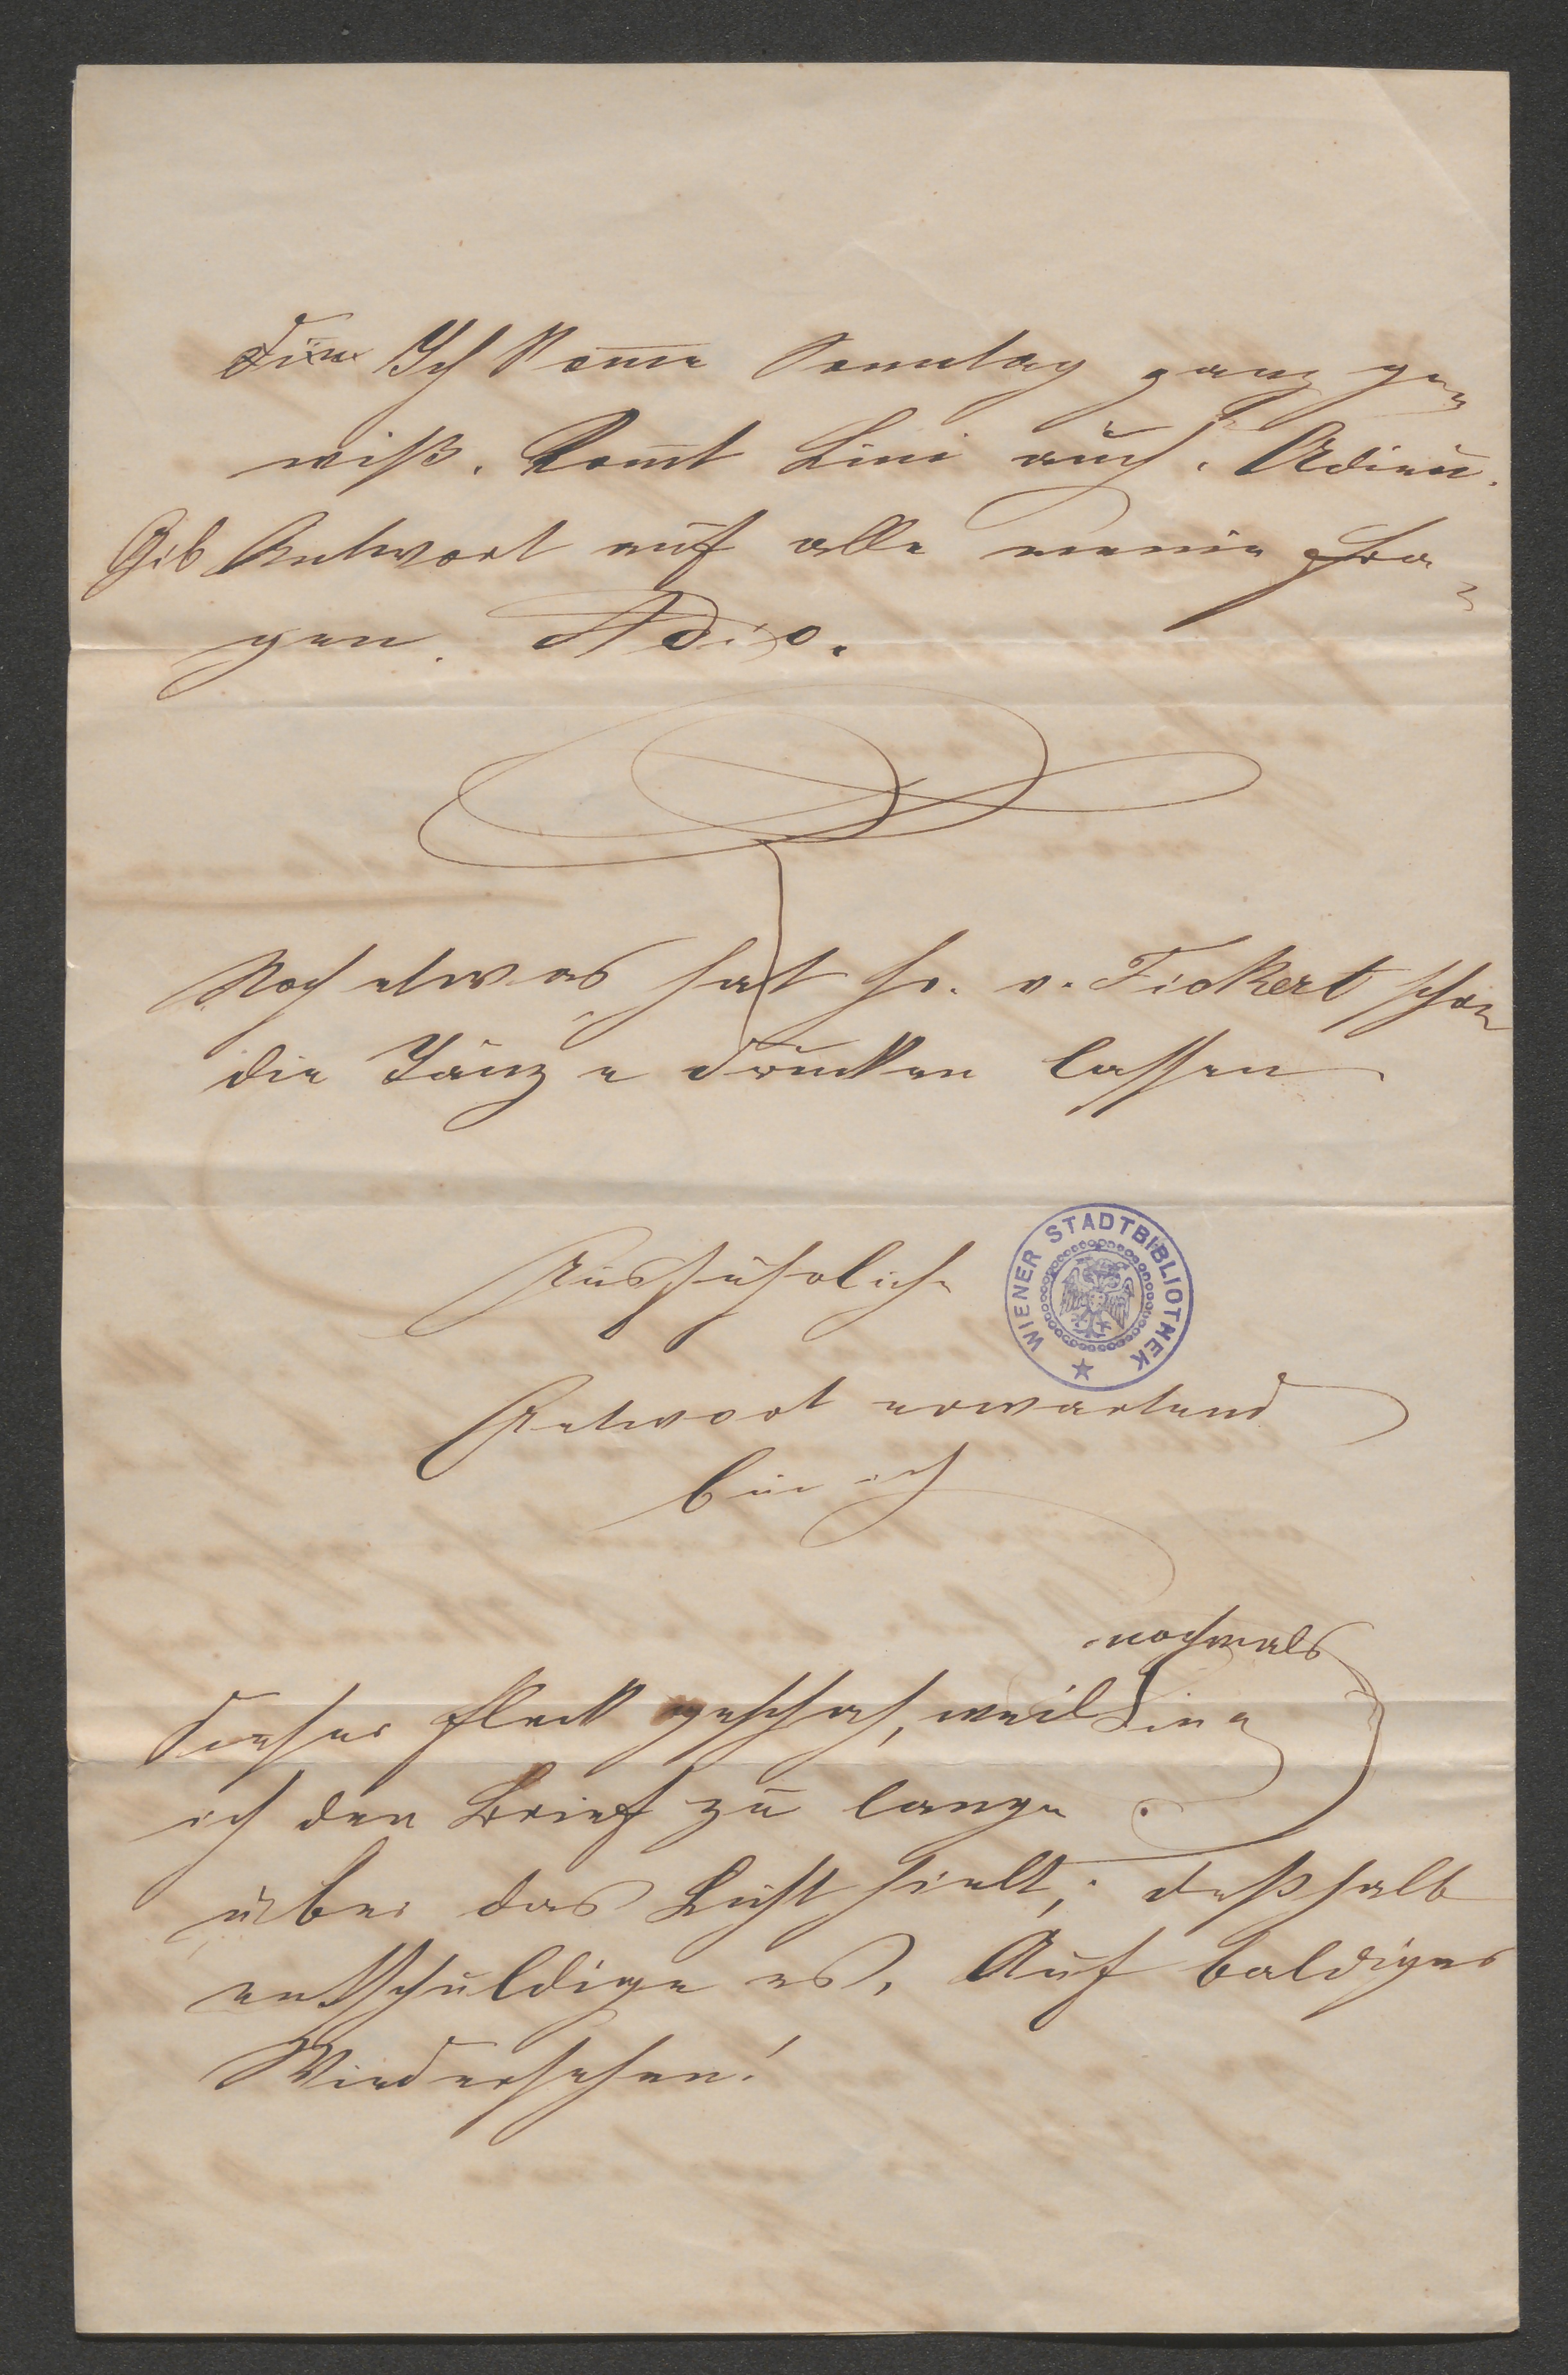 Ich komme Sonntag ganz ge-
wiß. Kommt Lini auch. Adieu.
Gib Antwort auf alle meine Fra-
gen. Adio.
Noch etwas hat Hr. v. Fickert schon
die Tänze drucken lassen
Ausführliche
WIENER STADTBIBLIOTHEK
Antwort erwartend
bin ich
nochmals
Dieser Fleck geschah, weil
ich den Brief zu lange
über das Licht hielt; deßhalb
entschuldige es. Auf baldiges
Wiedersehen!